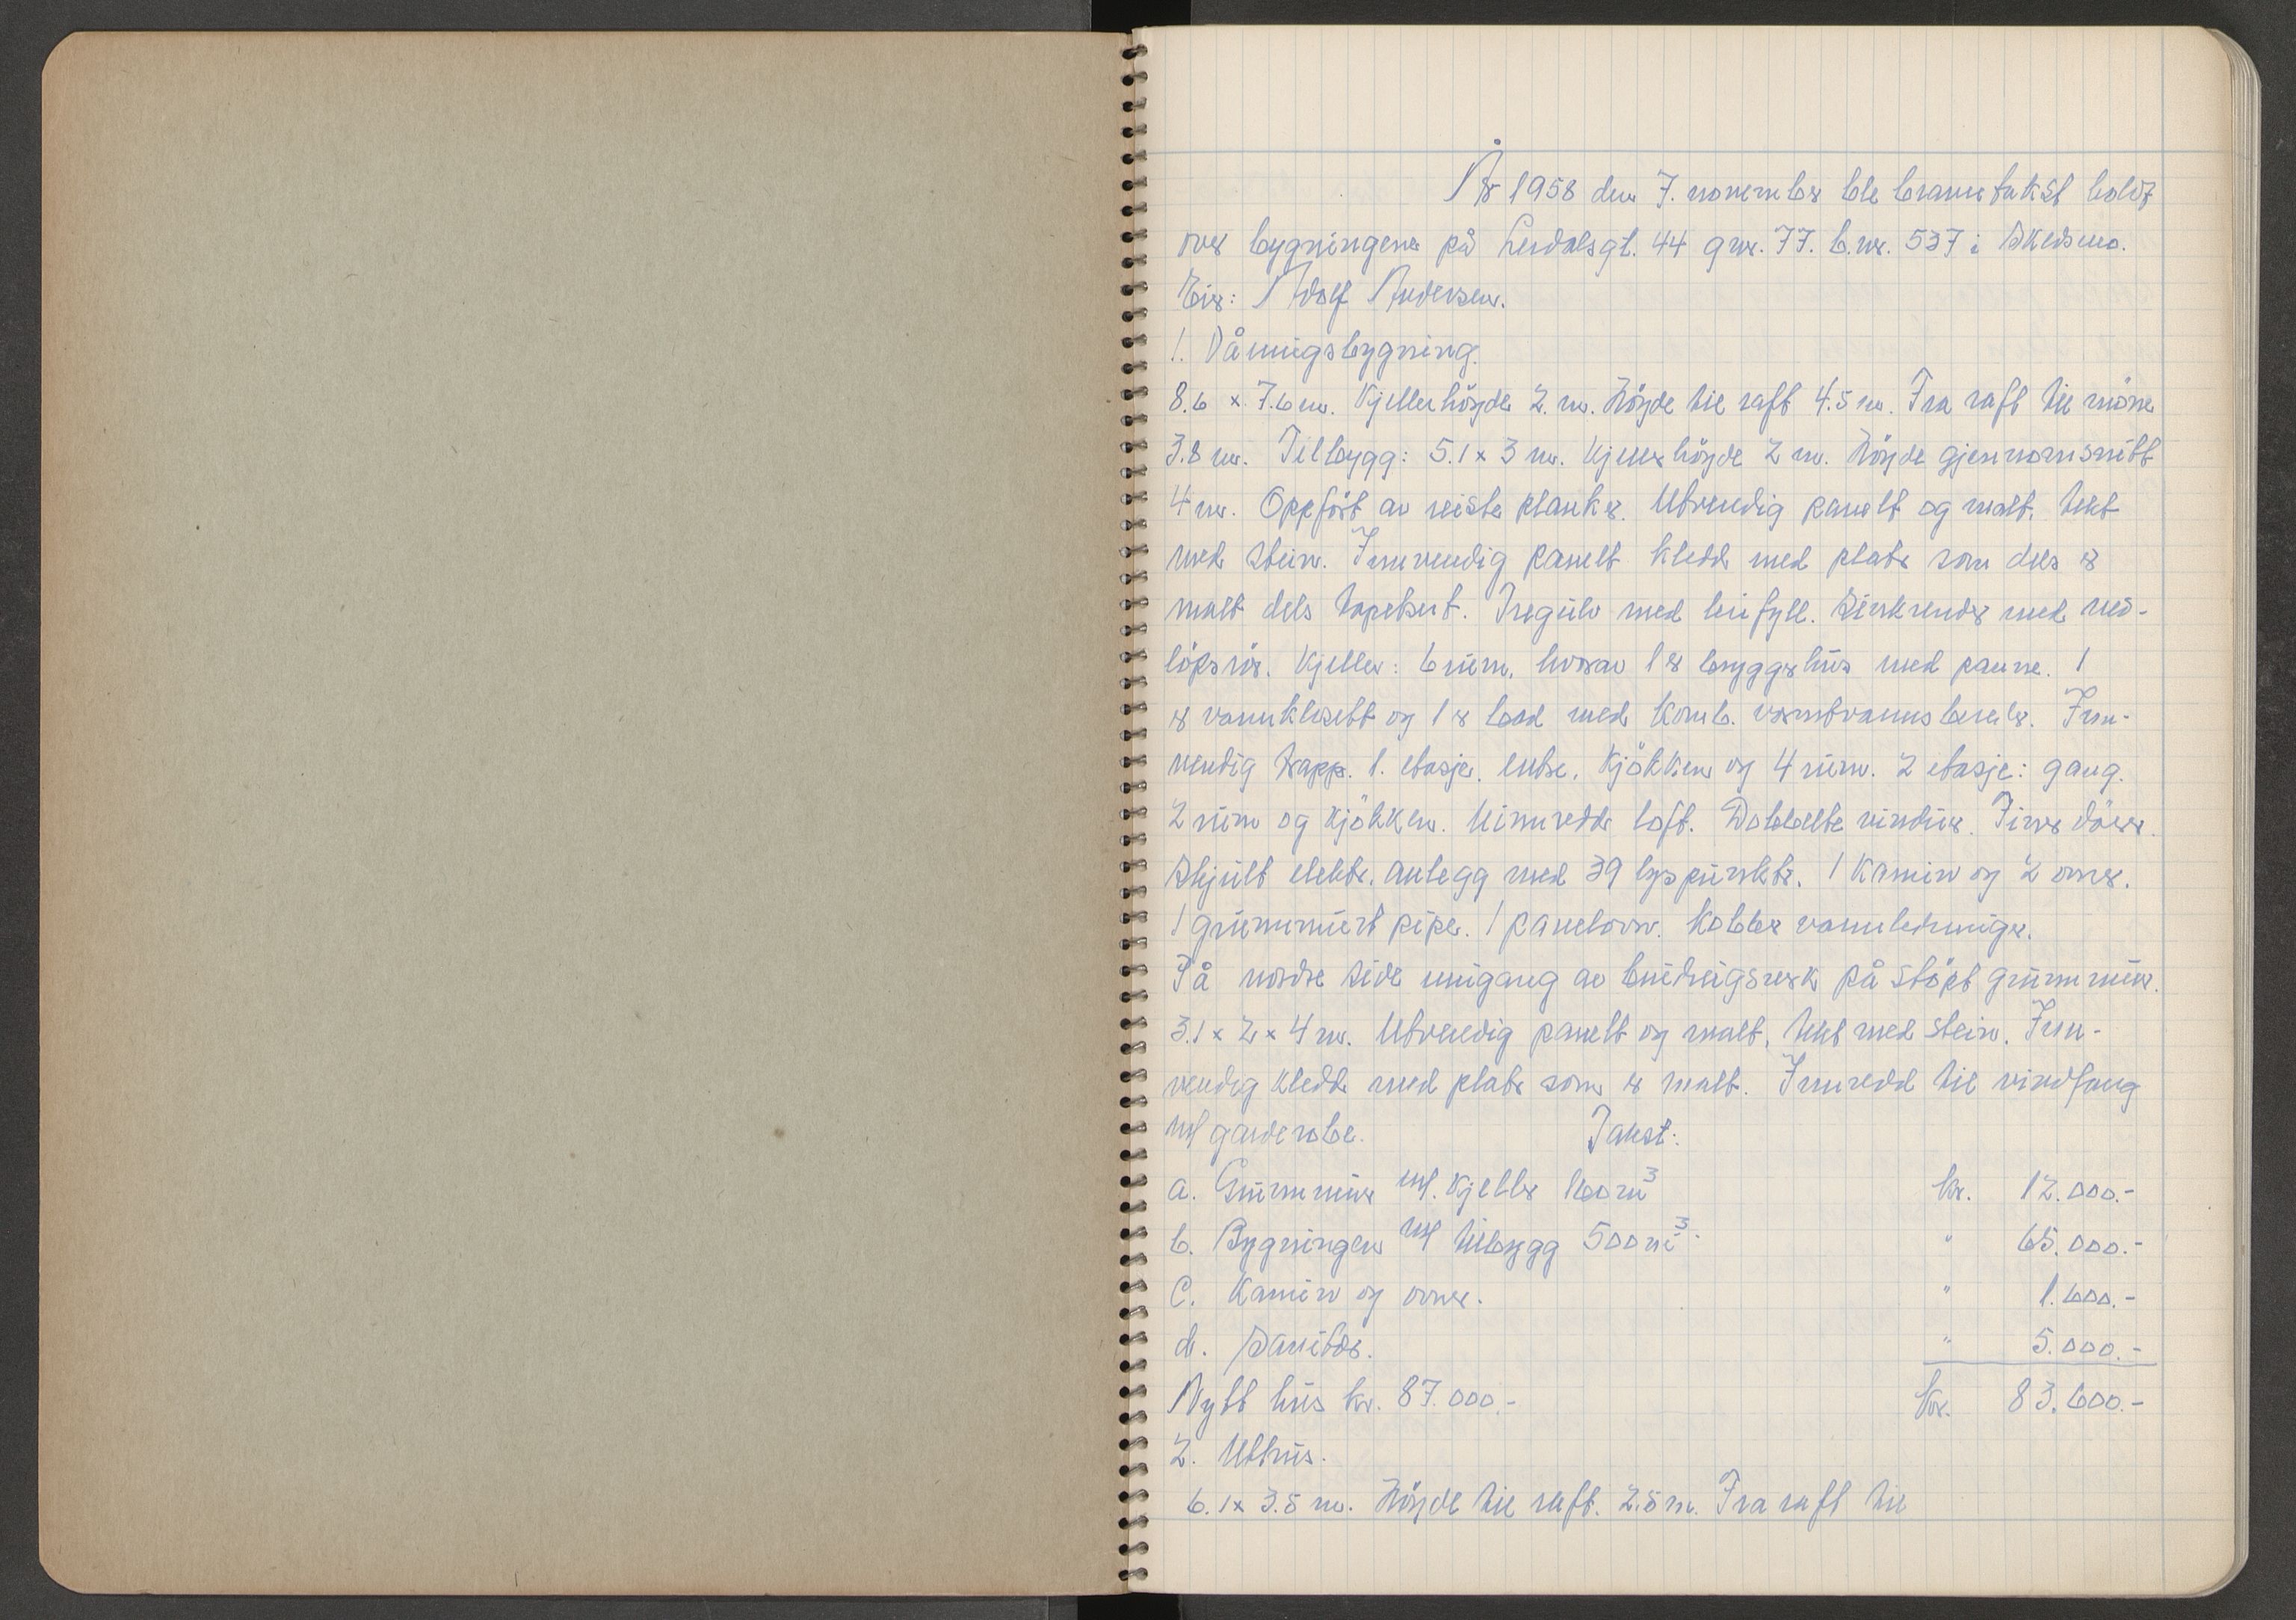 År 1958 den 7. november ble branntakst holdt
over bygningene på Leirdalsgt. 44 g.nr. 77. b.nr. 537 i Skedsmo.
Eier: Adolf Andersen.
1. Våningsbygning.
8.6 x 7.6 m. Kjellerhöyde 2. m. Höyde til raft 4.5 m. Fra raft til möne
3.8 m. Tilbygg: 5.1 x 3 m. Kjellerhöyde 2 m. Höyde gjennomsnitt
4 m. Oppfört av reiste planker. Utvendig panelt og malt. tekt
med stein. Innvendig panelt kledd med plater som dels er
malt dels tapetsert. Tregulv med leirfyll. Sinkrender med ned-
löpsrör. Kjeller: 6 rum, hvorav 1 er bryggerhus med panne. 1
er vannklosett og 1 er bad med komb. varmtvannsbereder. Inn-
vendig trapp. 1. etasje. entre. Kjökken og 4 rum. 2 etasje: gang.
2 rum og kjökken. Uinnredde loft. Dobbelte vinduer. Finer dörer.
Skjult elektr. anlegg med 39 lyspunkter. 1 Kamin og 2 ovner.
1 grunnmurt pipe. 1 panelovn. Kobber vannledninger.
På nordre side inngang av bindingsverk på stöpt grunnmur.
3.1 x 2 x 4 m. Utvendig panelt og malt, tekt med stein. Inn-
vendig kledd med plater som er malt. Innredd til vindfang
m/ garderobe. Takst:
a. Grunnmur m/. kjeller 160 m³ kr. 12.000.-
b. Bygningen m/ tilbygg 500 m³. " 65.000.-
c. Kamin og ovner. " 1.600.-
d. Sanitær. " 5.000.-
Nytt hus kr. 87.000.- kr. 83.600.-
2. Uthus.
6.1 x 3.5 m. Höyde til raft. 2.5 m. Fra raft til